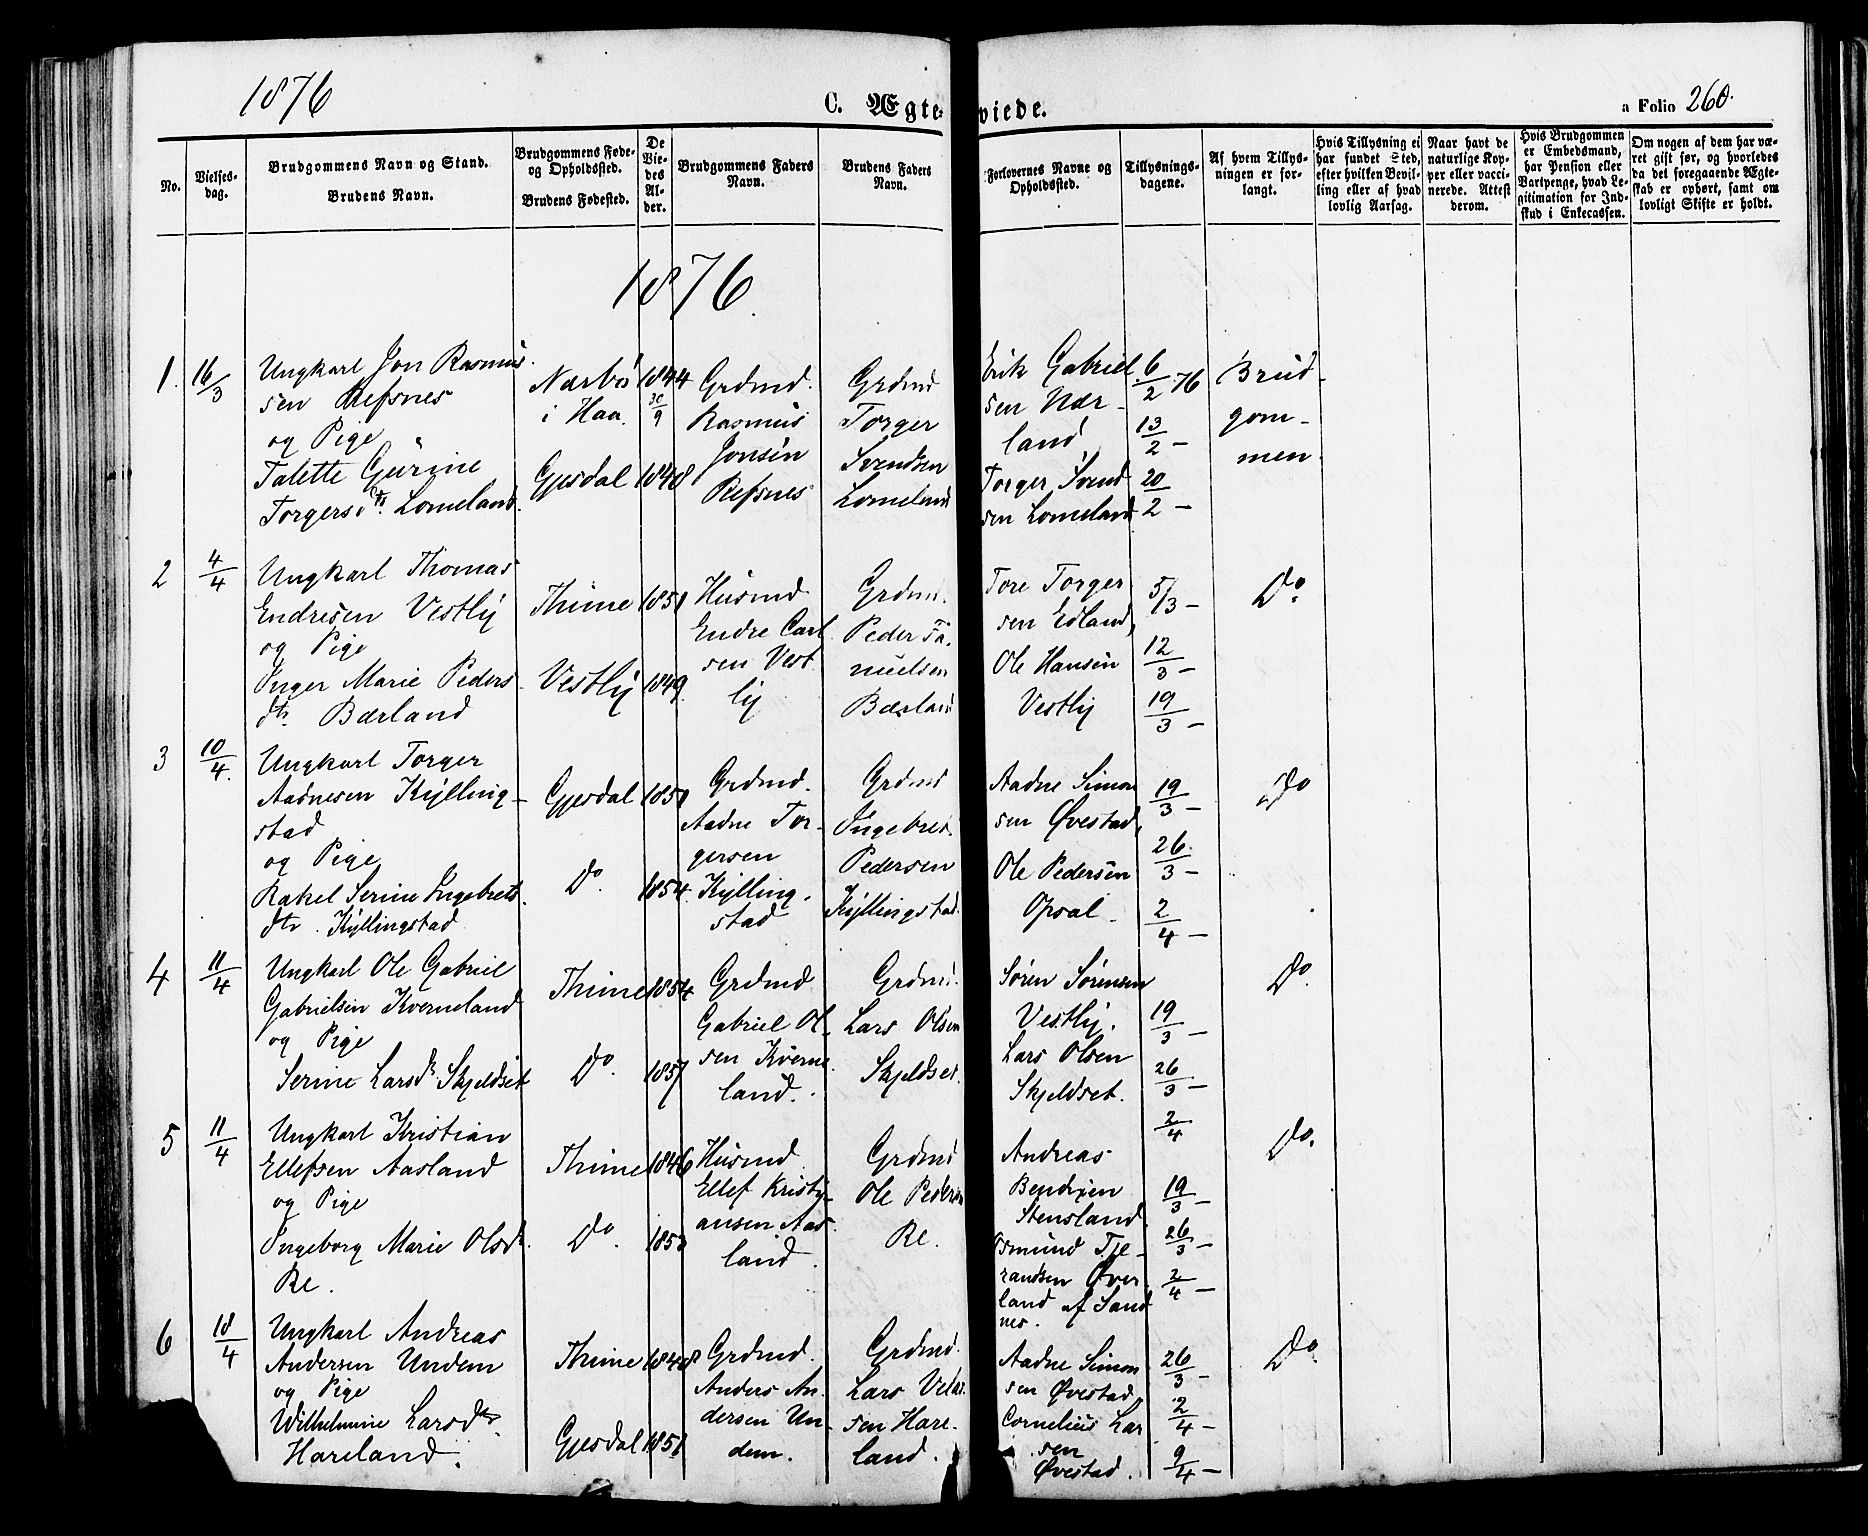 1876
C. Ægteviede.
a Folio 260.
No.
Vielsesdag.
Brudgommens Navn og Stand.
Brudens Navn.
Brudgommens Føde- og Opholdssted.
Brudens Fødested.
De Viedes Alder.
Brudgommens Faders Navn.
Brudens Faders Navn.
Forlovernes Navne og Opholdssted.
Tillysningsdagene.
Af hvem Tillysningen er forlangt.
Hvis Tillysning ei har fundet Sted, efter hvilken Bevilling eller af hvad lovlig Aarsag.
Naar havt de naturlige Kopper eller vaccinerede. Attest derom.
Hvis Brudgommen er Embedsmand, har Pension eller Vartpenge, hvad Legitimation for Indskud i Enkecassen.
Om nogen af dem har været gift før, og hvorledes da det foregaaende Ægteskab er ophørt, samt om lovligt Skifte er holdt.
1876.
1. 16/3
Ungkarl Jon Rasmus-
sen Refsnes
og Pige
Talette Gurine
Torgersdtr. Lomeland.
Nærbø
i Haa.
Gjesdal
1844
30/9
1848
Grdmd.
Rasmus
Jonsen
Refsnes
Grdmd
Torger
Svendsen
Lomeland
Erik Gabriel
sen Nær-
land
Torger Svend
sen Lomeland
6/2 76
13/2 —
20/2 —
Brud-
gom-
men.
2 4/4
Ungkarl Thomas
Endresen Vestly
og Pige
Inger Marie Peders
dtr. Bærland
Thime
Vestly
1851
1849.
Husmd.
Endre Carl
sen Vest
ly
Grdmd.
Peder Ta-
nielsen
Bærland
Tore Torger
sen Edland,
Ole Hansen
Vestly
5/3 —
12/3 —
19/3 —
Do.
3 10/4.
Ungkarl Torger
Aadnesen Kylling-
stad
og Pige
Rakel Serine Ingebrets
dtr. Kyllingstad
Gjesdal
Do.
1851
1854.
Grdmd.
Aadne Tor-
gersen
Kylling-
stad
Grdmd
Ingebret
Pedersen
Kyllingstad.
Aadne Simon
sen Øvestad,
Ole Pedersen
Opsal.
19/3 —
26/3 —
2/4 —
Do
4 11/4
Ungkarl Ole Gabriel
Gabrielsen Kverneland
og Pige
Serine Larsdtr. Skjeldset
Thime
Do.
1854
1857
Grdmd
Gabriel Ol-
sen Kverne
land.
Grdmd.
Lars Olsen
Skjeldset.
Søren Sørensen
Vestly.
Lars Olsen
Skjeldset.
19/3 —
26/3 —
2/4
Do.
5 11/4
Ungkarl Kristian
Ellefsen Aasland
og Pige
Ingeborg Marie Olsdtr.
Re.
Thime
Do.
1846
Husmd.
Ellef Kristi-
ansen Aas
land.
Grdmd
Ole Pedersen
Re.
Andreas
Stensland
Osmund Tje-
randsen Øver
land af Sand
nes.
19/3 —
26/3 —
2/4 —
Do.
6 18/4
Ungkarl Andreas
Andersen Undem
og Pige
Wilhelmine Larsdtr.
Hareland.
Thime
Gjesdal
1848
1851
Grdmd.
Anders An-
dersen Un-
dem.
Grdmd.
Lars Velas
sen Hare-
land.
Aadne Simon
sen Øvestad
Cornelius Lar
sen
Øvestad.
26/3 —
2/4 —
9/4 —
Do.